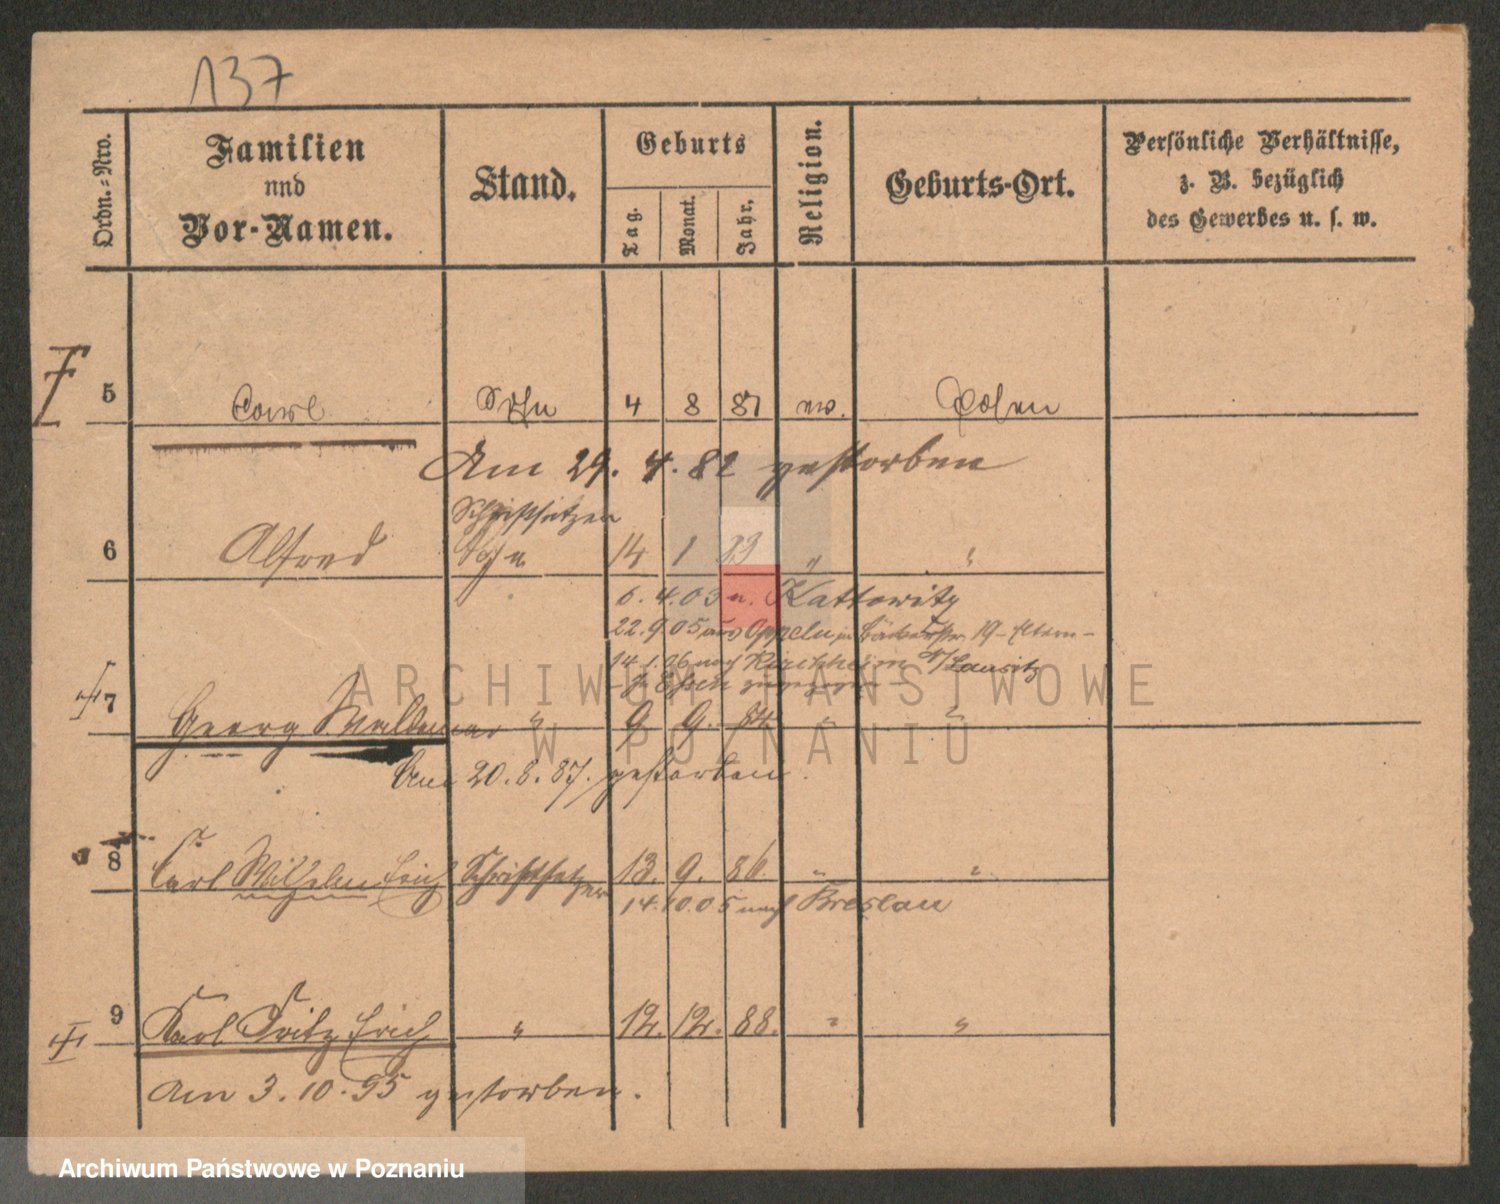 137
Ordn.-Nro.
Familien
und
Vor-Namen.
Stand.
Geburts
Tag.
Monat.
Jahr.
Religion.
Geburts-Ort.
Persönliche Verhältnisse,
z. B. bezüglich
des Gewerbes u. s. w.
5 Carl Sohn 4 8 81 ev. Posen
Am 29. 4. 82 gestorben
Schriftsetzer
6 Alfred Sohn 14 1 83 " "
6. 4. 03 n. Kattowitz
22. 9 05 aus Oppeln in 19 - Eltern -
14. 1. 06 nach Kirchhain N/Lausitz
7 Georg Waldemar " 9. 9. 84. " "
Am 20. 8. 87. gestorben.
8 Carl Wilhelm Erich Schriftsetzer 13. 9. 86. " "
14. 10. 05 nach Breslau
9 Karl Fritz Erich " 12. 12. 88. " "
Am 3. 10. 95 gestorben.
ARCHIWUM PAŃSTWOWE
W POZNANIU
Archiwum Państwowe w Poznaniu